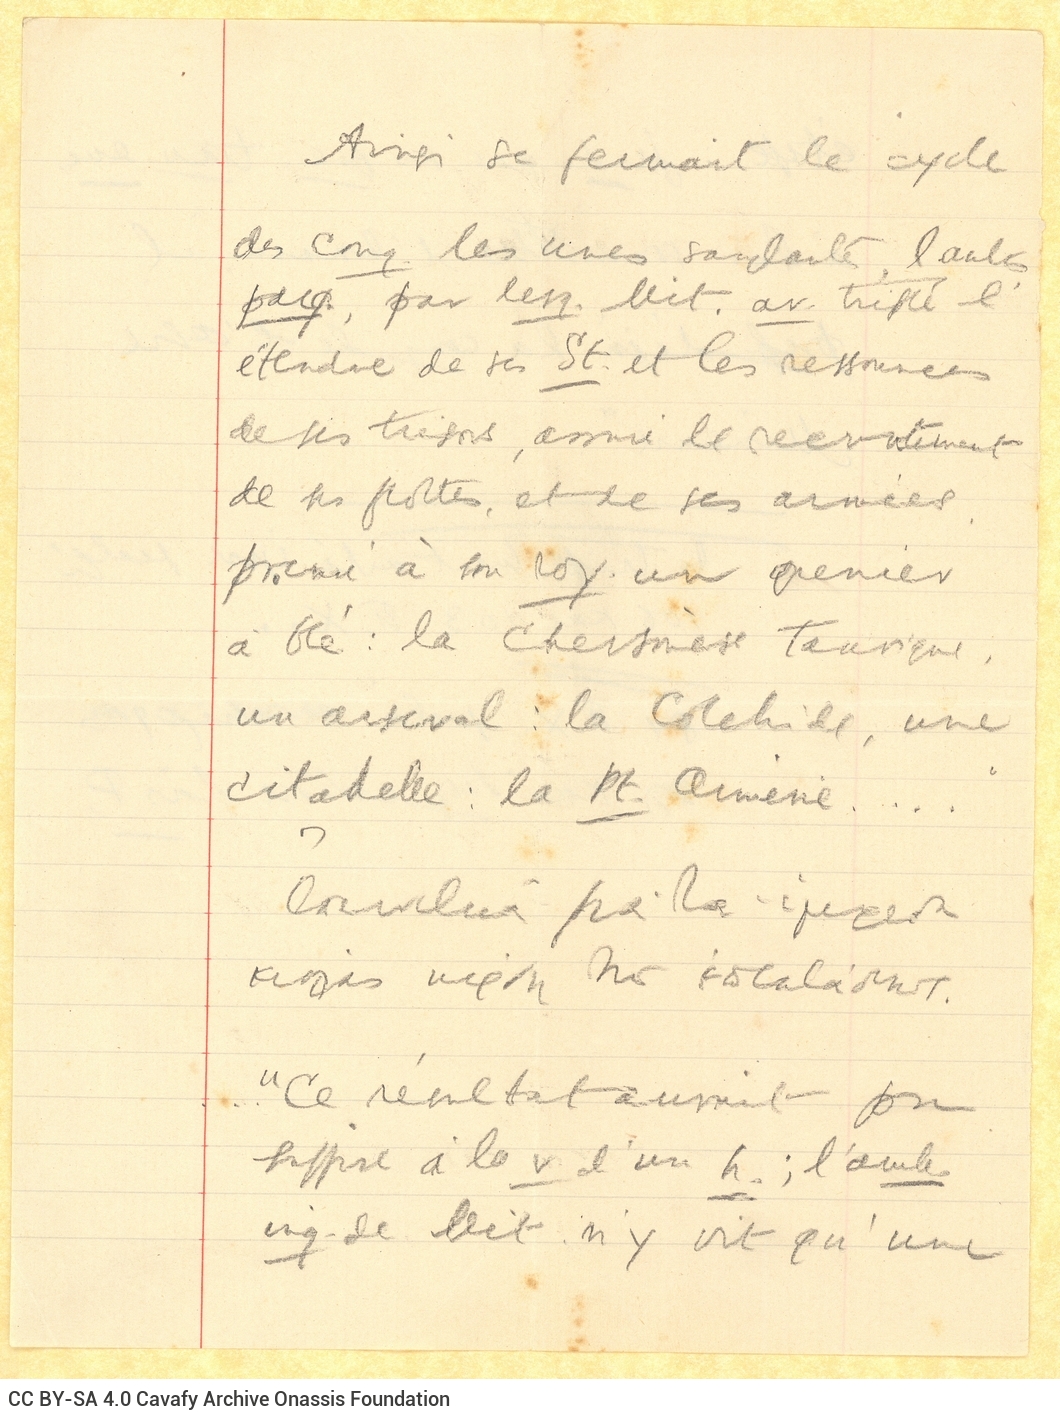 Ainsi se fermait le cycle
des conq. les unes sanglantes, l'autres
pacif., par lesq. Mit. av. triplé l'
étendue de ses St. et les ressources
de ses trésors, assuré le recrutement
de ses flottes, et de ses armées,
à son roy. un grenier
à blé : la Chersonèse Taurique,
un arsenal : la Colchide, une
citadelle : la Pt. Arménie . . . . "
κυρίας
"Ce résultat aurait pu
suffire à la v. d'un h. ; l'amb.
de Mit. n'y vit qu'une
CC BY-SA 4.0 Cavafy Archive Onassis Foundation